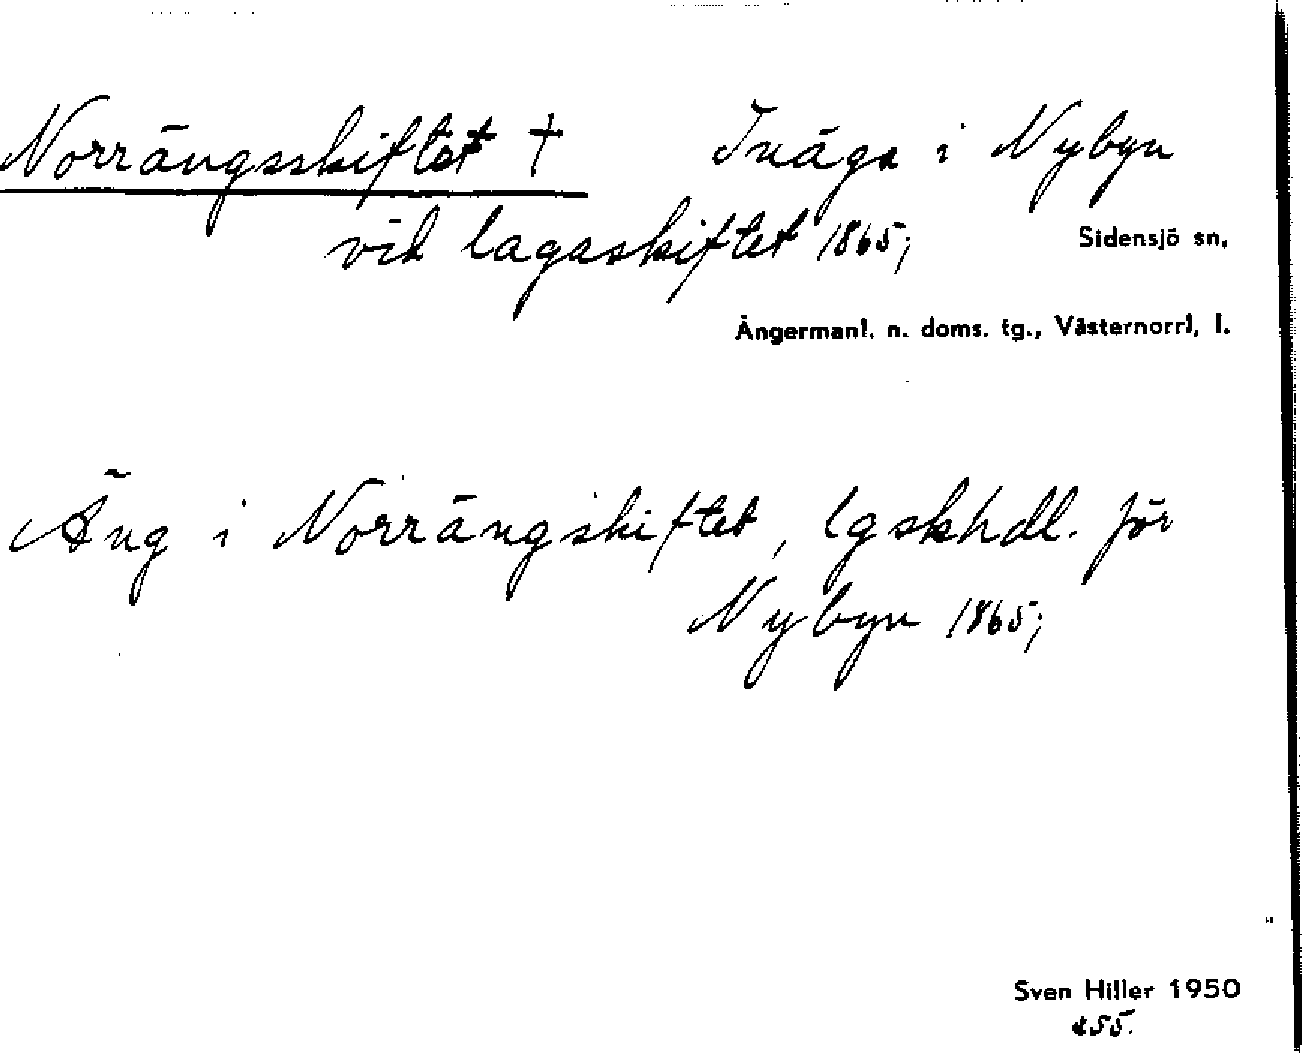 Norrängsskiftet † Inäga i Nybyn
vid lagaskiftet 1865;
Sidensjö sn,
Ångermanl. n. doms. tg., Västernorrl, l.
Äng i Norrängskiftet, lgskhdl. för
Nybyn 1865;
Sven Hiller 1950